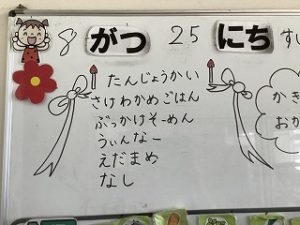 8 がつ 25 にち す
たんじょうかい
さけわかめごはん
ぶっかけそーめん
うぃんなー
えだまめ
なし
かき
おか